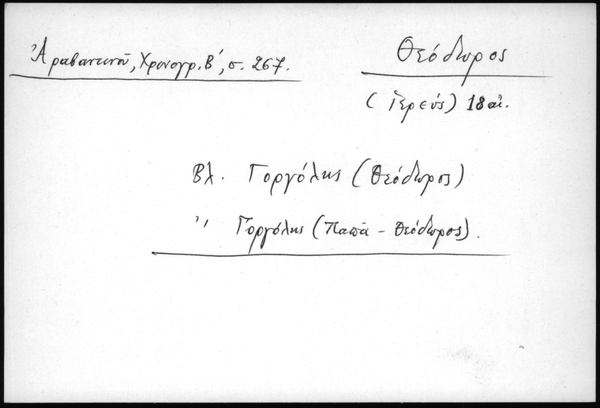 Ἀραβαντινοῦ, Χρονογρ. Β΄, σ. 267.
Θεόδωρος
(Ἱερεύς) 18 αἰ.
Βλ. Γοργόλης (Θεόδωρος)
〃 Γοργόλης (Παπᾶ - Θεόδωρος).